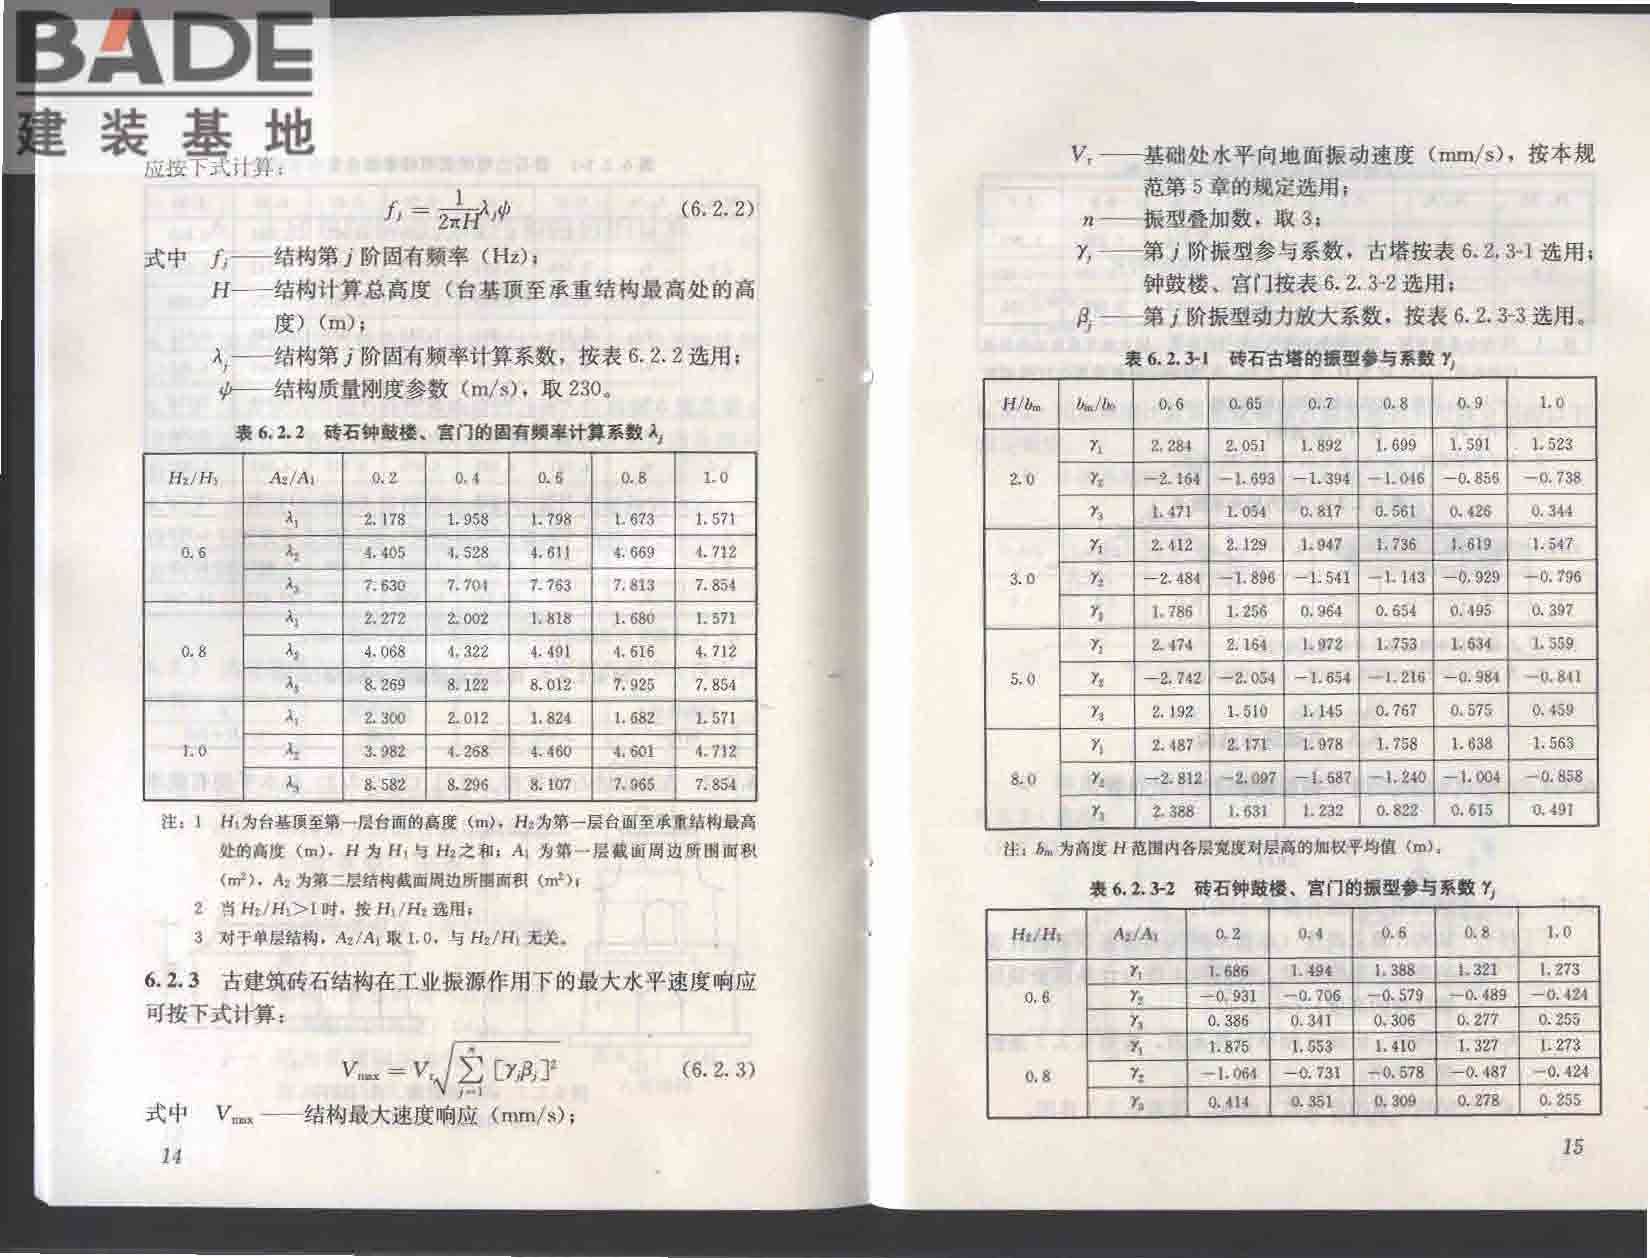 BADE
建装基地
应按下式计算：
f_j = \frac{1}{2πH}λ_jψ (6.2.2)
式中 f_j——结构第 j 阶固有频率（Hz）；
H——结构计算总高度（台基顶至承重结构最高处的高
度）(m)；
λ_j——结构第 j 阶固有频率计算系数，按表 6.2.2 选用；
ψ——结构质量刚度参数（m/s），取 230。
表 6.2.2 砖石钟鼓楼、宫门的固有频率计算系数 λ_j
H₂/H₁ A₂/A₁ 0.2 0.4 0.6 0.8 1.0
0.6 λ₁ 2.178 1.958 1.798 1.673 1.571
λ₂ 4.405 4.528 4.611 4.669 4.712
λ₃ 7.630 7.704 7.763 7.813 7.854
0.8 λ₁ 2.272 2.002 1.818 1.680 1.571
λ₂ 4.068 4.322 4.491 4.616 4.712
λ₃ 8.269 8.122 8.012 7.925 7.854
1.0 λ₁ 2.300 2.012 1.824 1.682 1.571
λ₂ 3.982 4.268 4.460 4.601 4.712
λ₃ 8.582 8.296 8.107 7.965 7.854
注：1 H₁为台基顶至第一层台面的高度（m），H₂为第一层台面至承重结构最高
处的高度（m），H 为 H₁ 与 H₂ 之和；A₁ 为第一层截面周边所围面积
（m²），A₂ 为第二层结构截面周边所围面积（m²）；
2 当 H₂/H₁>1 时，按 H₁/H₂ 选用；
3 对于单层结构，A₂/A₁ 取 1.0，与 H₂/H₁ 无关。
6.2.3 古建筑砖石结构在工业振源作用下的最大水平速度响应
可按下式计算：
V_max = V_r \sqrt{\sum_{j=1}^{n} [γ_jβ_j]²} (6.2.3)
式中 V_max——结构最大速度响应（mm/s）；
14
V_r——基础处水平向地面振动速度（mm/s），按本规
范第 5 章的规定选用；
n——振型叠加数，取 3；
γ_j——第 j 阶振型参与系数，古塔按表 6.2.3-1 选用；
钟鼓楼、宫门按表 6.2.3-2 选用；
β_j——第 j 阶振型动力放大系数，按表 6.2.3-3 选用。
表 6.2.3-1 砖石古塔的振型参与系数 γ_j
H/b_m b_m/b₀ 0.6 0.65 0.7 0.8 0.9 1.0
2.0 γ₁ 2.284 2.051 1.892 1.699 1.591 1.523
γ₂ −2.164 −1.693 −1.394 −1.046 −0.856 −0.738
γ₃ 1.471 1.054 0.817 0.561 0.426 0.344
3.0 γ₁ 2.412 2.129 1.947 1.736 1.619 1.547
γ₂ −2.484 −1.896 −1.541 −1.143 −0.929 −0.796
γ₃ 1.786 1.256 0.964 0.654 0.495 0.397
5.0 γ₁ 2.474 2.164 1.972 1.753 1.634 1.559
γ₂ −2.742 −2.054 −1.654 −1.216 −0.984 −0.841
γ₃ 2.192 1.510 1.145 0.767 0.575 0.459
8.0 γ₁ 2.487 2.171 1.978 1.758 1.638 1.563
γ₂ −2.812 −2.097 −1.687 −1.240 −1.004 −0.858
γ₃ 2.388 1.631 1.232 0.822 0.615 0.491
注：b_m 为高度 H 范围内各层宽度对层高的加权平均值（m）。
表 6.2.3-2 砖石钟鼓楼、宫门的振型参与系数 γ_j
H₂/H₁ A₂/A₁ 0.2 0.4 0.6 0.8 1.0
0.6 γ₁ 1.686 1.494 1.388 1.321 1.273
γ₂ −0.931 −0.706 −0.579 −0.489 −0.424
γ₃ 0.386 0.341 0.306 0.277 0.255
0.8 γ₁ 1.875 1.553 1.410 1.327 1.273
γ₂ −1.064 −0.731 −0.578 −0.487 −0.424
γ₃ 0.414 0.351 0.309 0.278 0.255
15